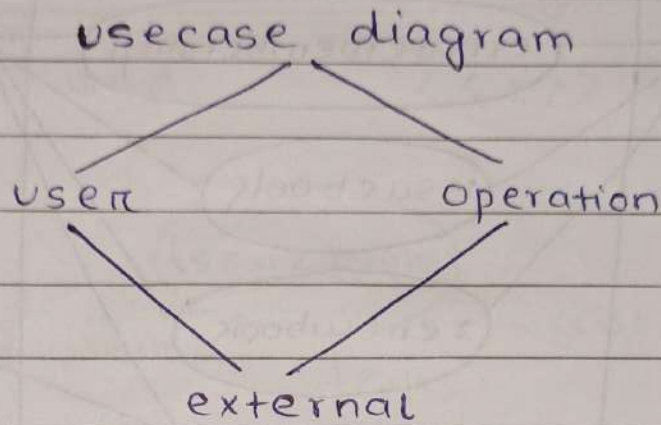 usecase diagram
user operation
external